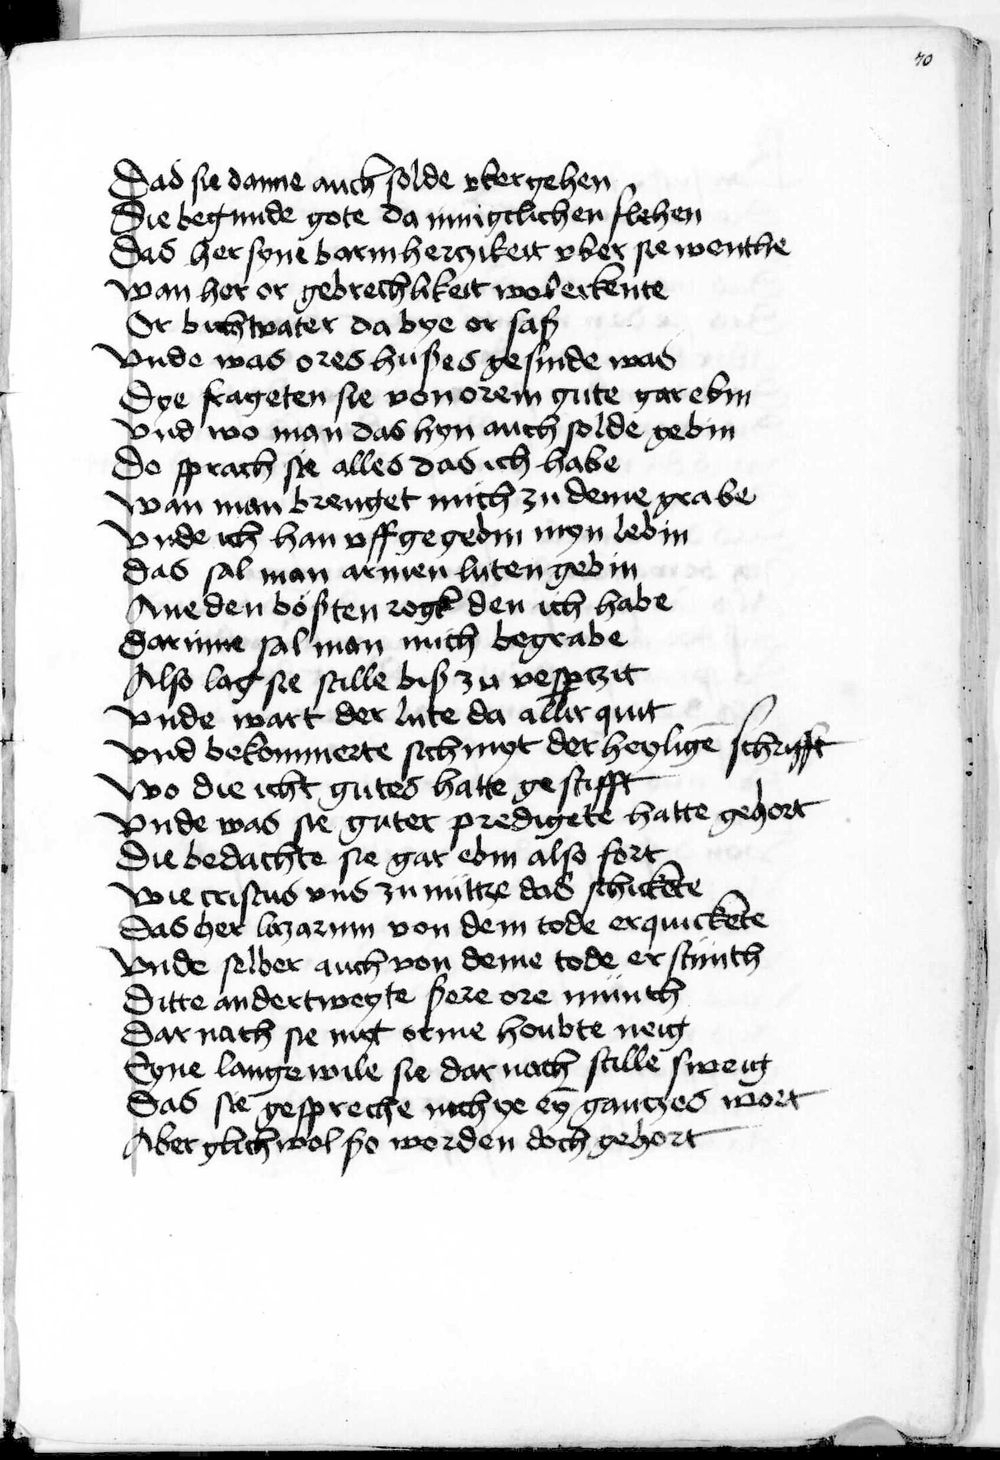 70
Das sie danne auch solde vbergehen
Die begunde gote da innigclichen flehen
Das her syne barmherczikeit vber sie wenthe
wan her or gebrechlikeit wol erkente
Or bichtvater da bye or saß
vnde was ores hußes gesinde was
Dye frageten sie von orem gute gar ebin
vnd wo man das hyn auch solde gebin
Do sprach sie alles das ich habe
wan man brenget mich zu deme grabe
vnde ich han vff gegebin myn lebin
das sal man armen luten gebin
Ane den bößten rogk den ich habe
darinne sal man mich begrabe
Also lag sie stille biß zu vespirzit
vnde wart der lute da allir quit
vnd bekommerte sich myt der heyligē schrifft
wo die icht gutes hatte gestifft
vnde was sie guter predigete hatte gehort
die bedachte sie gar ebin also fort
wie cristus vns zu nütze das schickete
das her lazarum von dem tode erquickete
vnde selber auch von deme tode erstünth
ditte andertweyte ßere ore münth
dar nach sie myt orme houbte neig
Eyne lange wile sie dar nach stille sweig
das sie gespreche nich ye eȳ ganczes wort
Aber glichwol ßo worden doch gehort